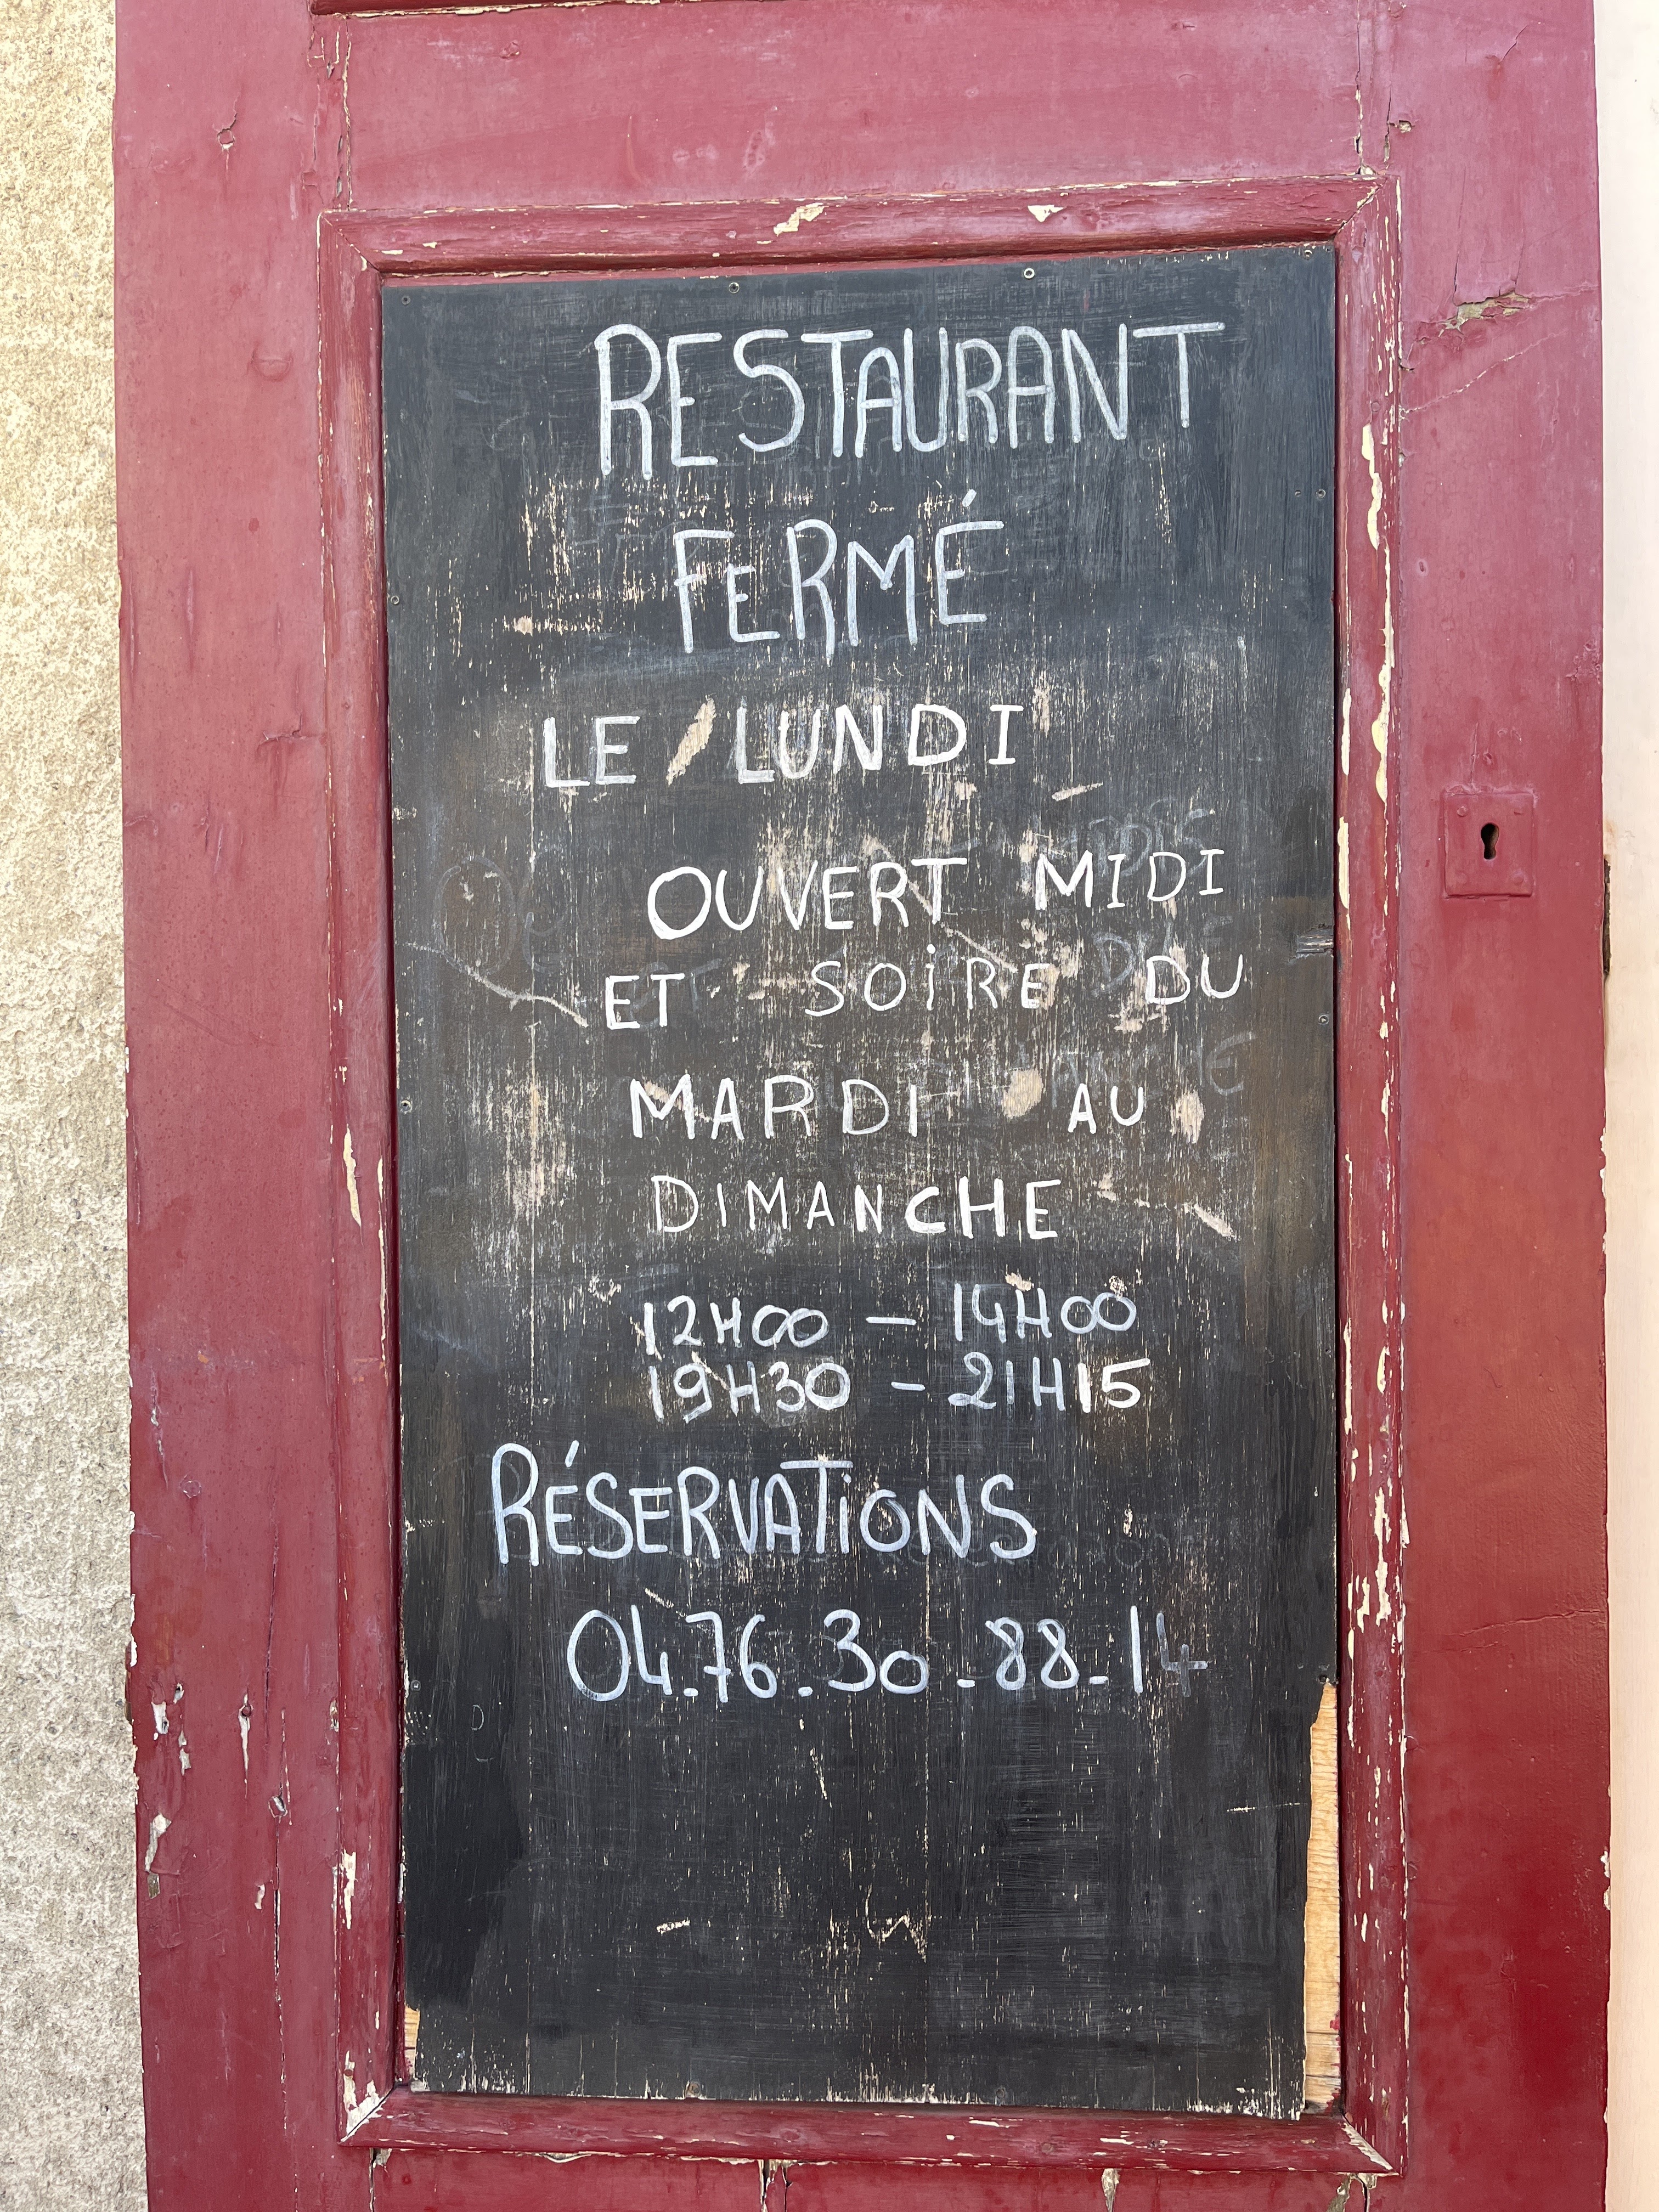 RESTAURANT
FERMÉ
LE LUNDI
OUVERT MIDI
ET SOIRE DU
MARDI AU
DIMANCHE
12H00 - 14H00
19H30 - 21H15
RÉSERVATIONS
04.76.30.88.14